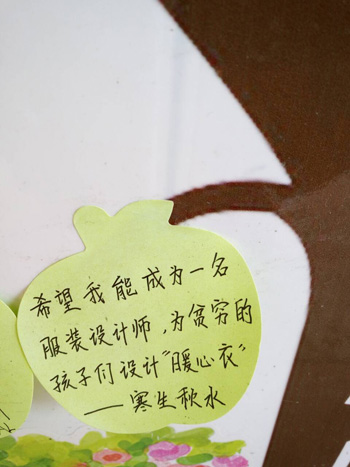 希望我能成为一名
服装设计师，为贫穷的
孩子们设计"暖心衣"
——寒生秋水